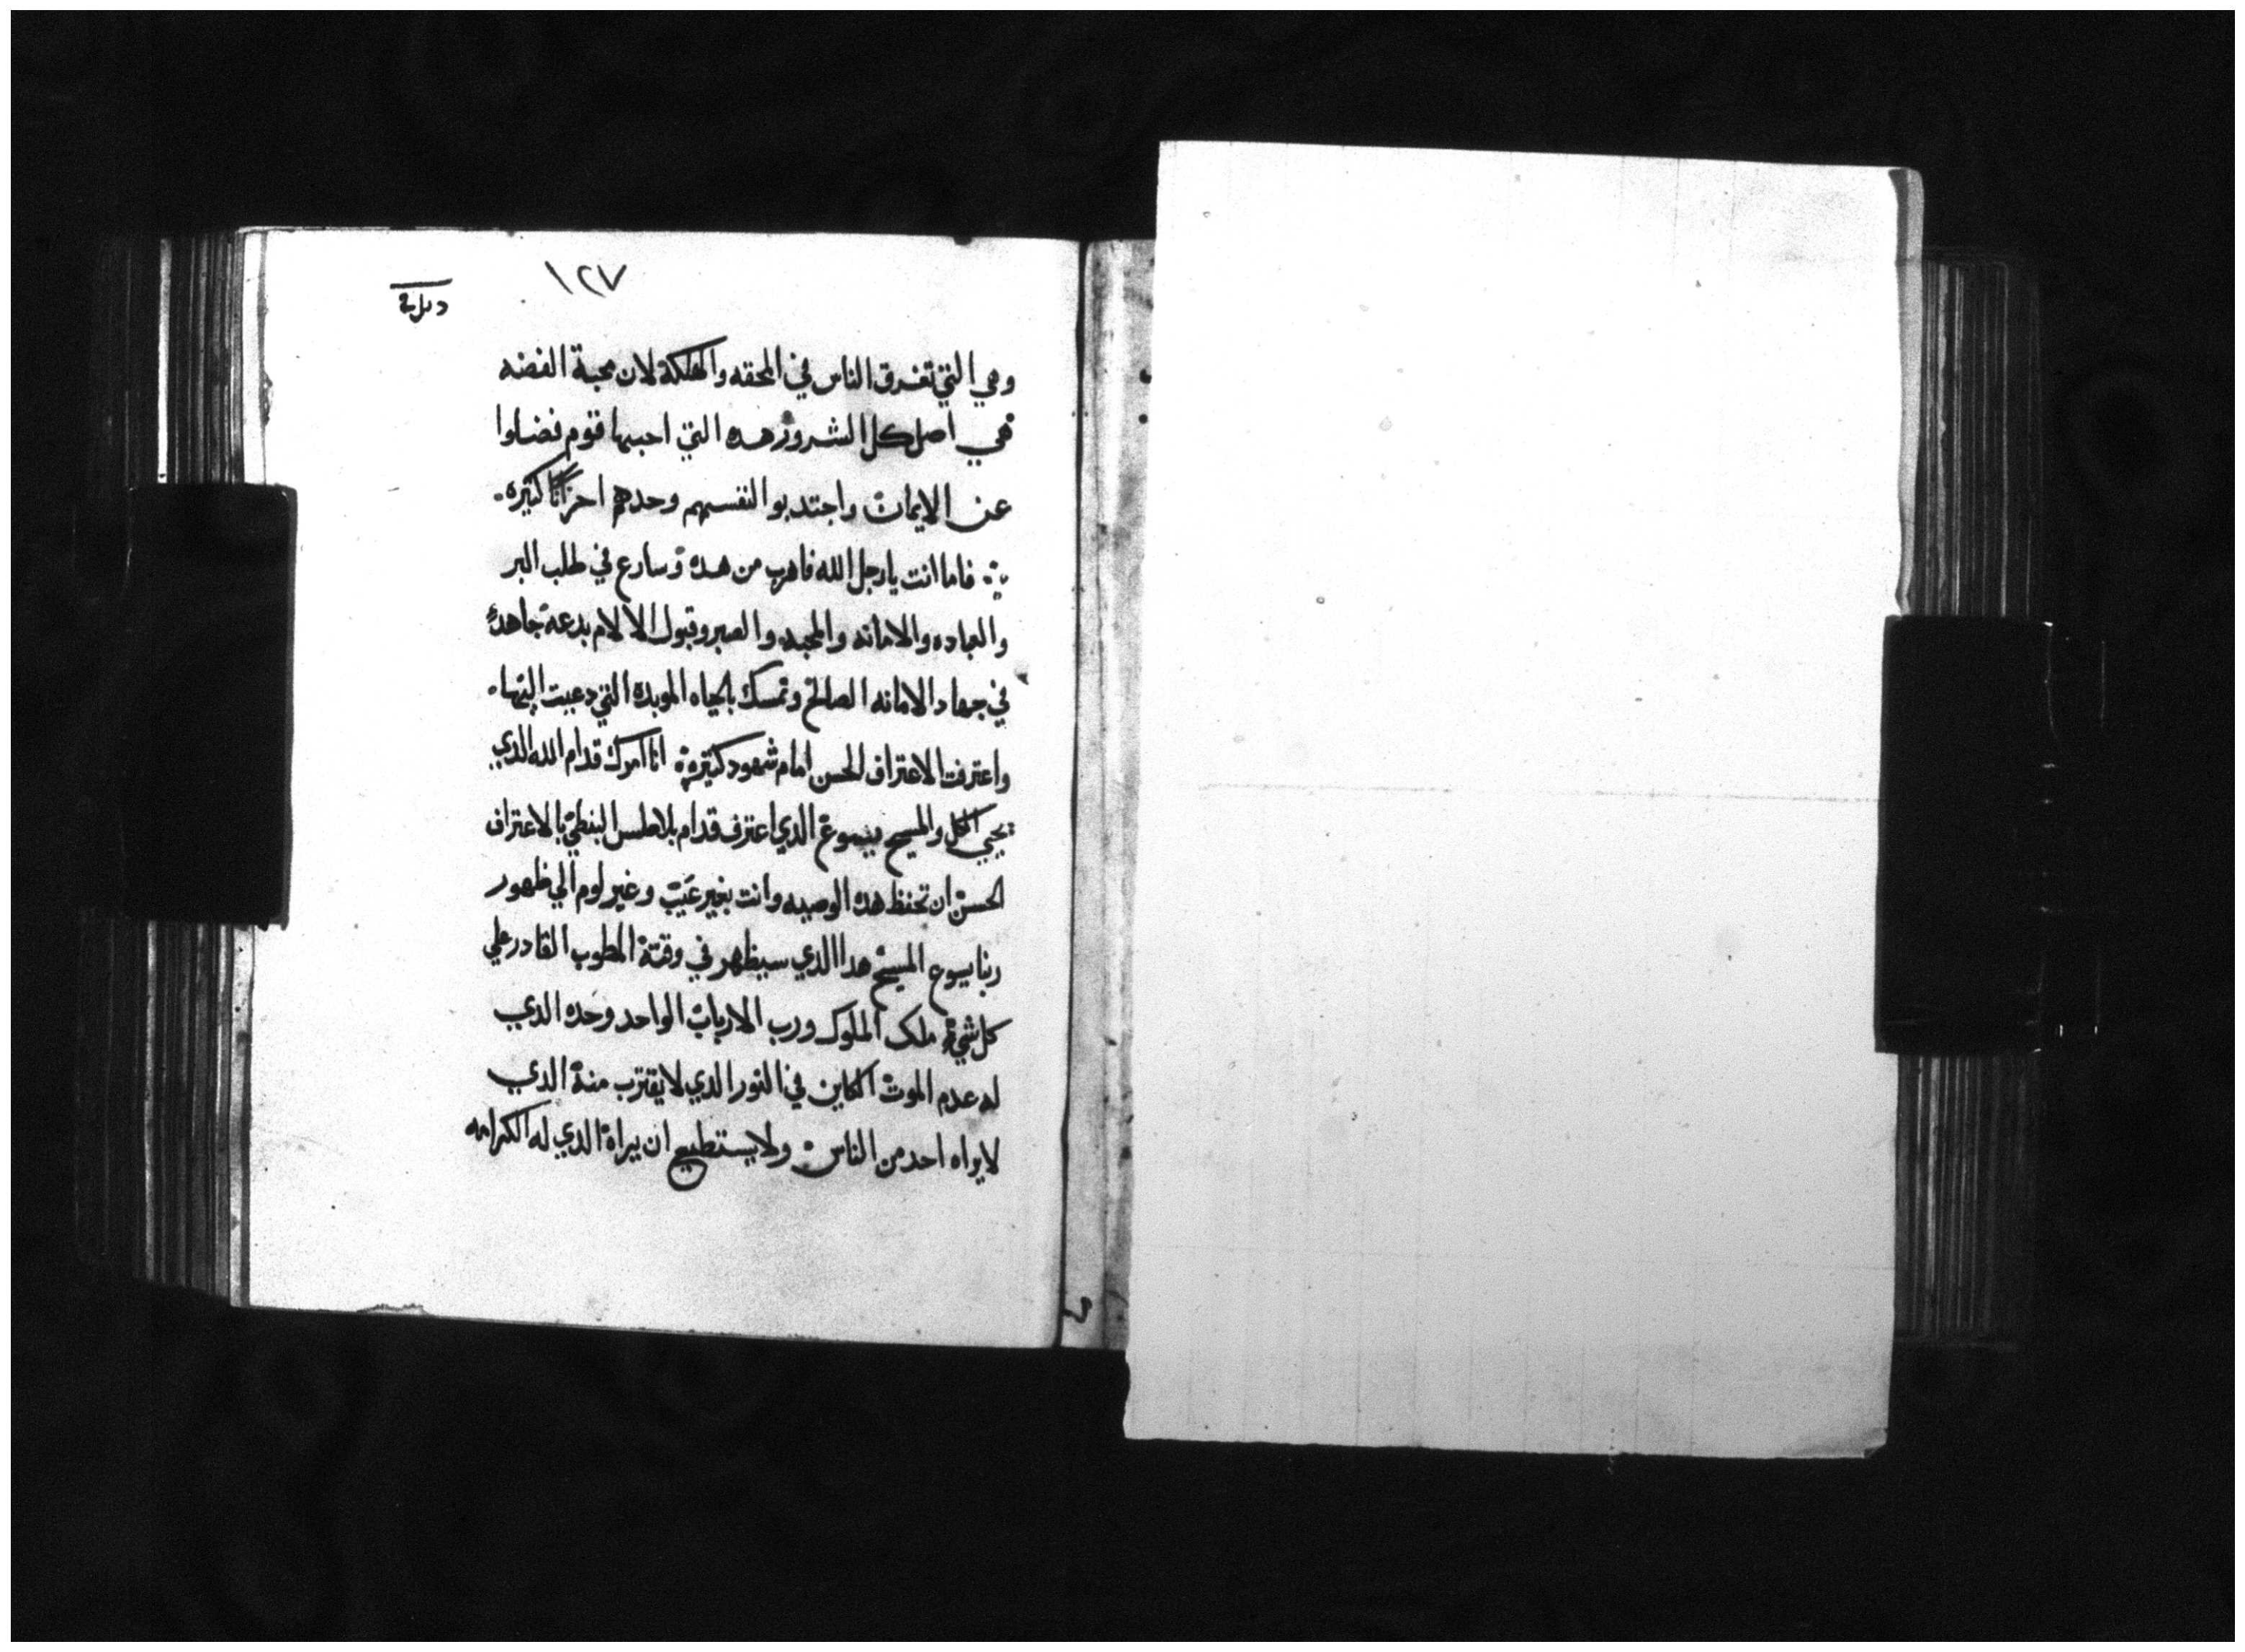 ١٢٧
وهي التي تغرق الناس في المحقه والهلكة لان محبة الفضه
هي اصل كل الشرور هده التي احبها قوم فضلوا
عن الايمان واجتدبو النفسهم وحدهم احزانًا كتيره.
فاما انت يا رجل الله فاهرب من هده وسارع في طلب البر
والعباده والامانه والمحبه والصبر وقبول الالام بدعة جاهد
في جهاد الامانه الصالح وتمسك بالحياه الموبده التي دعيت اليها.
واعترفت الاعتراف الحسن امام شهود كتيره انا امرك قدام الله الدي
يحيي الكل والمسيح يسوع الدي اعترف قدام بلاطس البنطي بالاعتراف
الحسن ان تحفظ هده الوصيه وانت بغير عيب وغير لوم الي ظهور
ربنا يسوع المسيح هدا الدي سيظهر في وقتة المطوب القادر علي
كل شي ملك الملوك ورب الارباب الواحد وحده الدي
له عدم الموت الكاين في النور الدي لا يقترب منة الدي
لا يراه احد من الناس ولا يستطيع ان يراة الدي له الكرامه